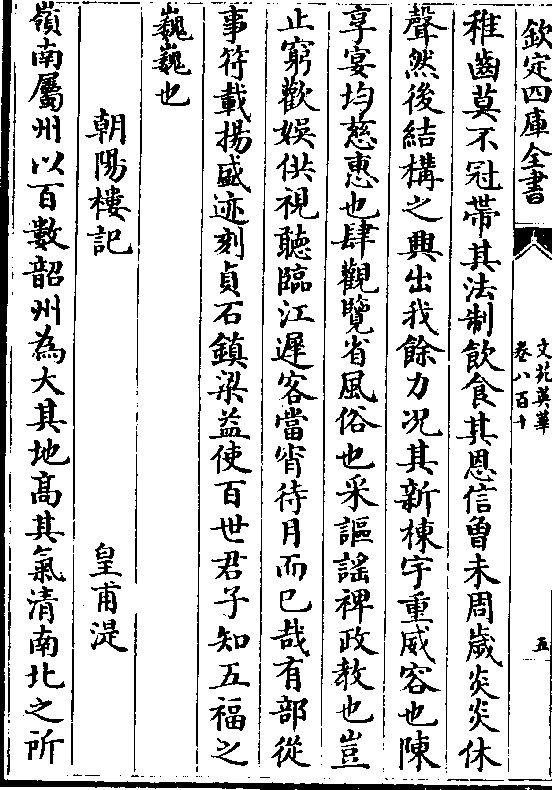 欽定四庫全書
文苑英華
卷八百十
五
稚齒莫不冠帶其法制飲食其恩信曾未周歲炎炎休
聲然後結構之興出我餘力况其新棟宇重威容也陳
享宴均慈惠也肆觀覽省風俗也采謳謡裨政教也豈
止窮歡娱供視聽臨江遲客當宵待月而已哉有部從
事符載揚盛迹刻貞石鎮梁益使百世君子知五福之
巍巍也
朝陽樓記 皇甫湜
嶺南屬州以百數韶州為大其地高其氣清南北之所